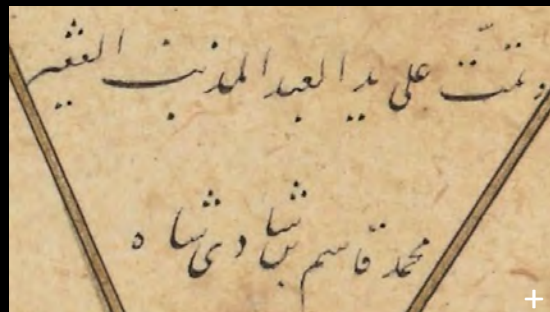 و تمّت على يد العبد المذنب الفقير
محمد قاسم بن شادی شاه